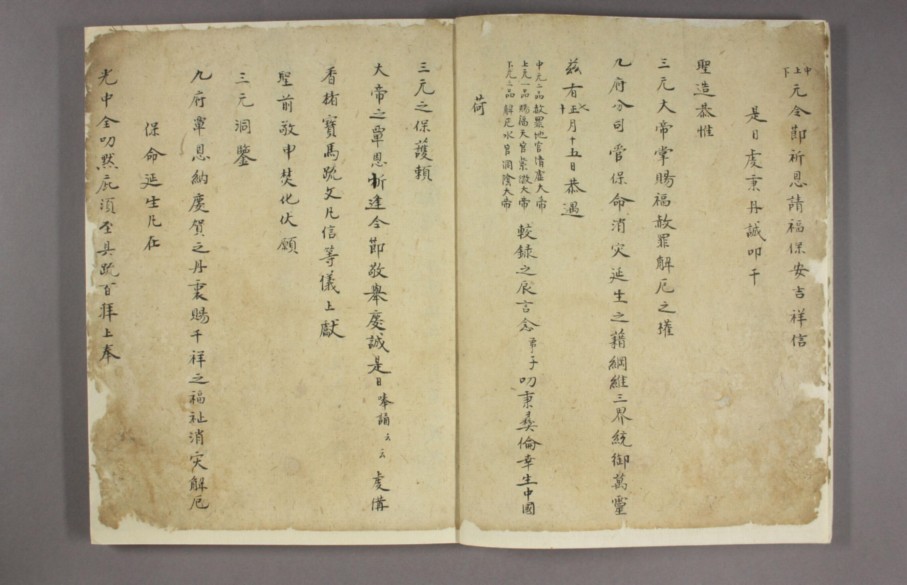 上中下元令節祈恩請福保安吉祥信
是日虔秉丹誠叩干
聖造恭惟
三元大帝掌賜福赦罪解厄之權
九府分司管保命消灾延生之藉綱維三界統御萬靈
茲有正七十月十五日恭遇
中元二品赦罪地官清虛大帝
上元一品賜福天官紫微大帝
下元三品解厄水官洞陰大帝
較錄之辰言念弟子叨秉彝倫幸生中國
荷
三元之保護賴
大帝之覃恩析逢令節敬舉慶誠是日奉誦云云虔備
香楮寶馬疏文凡信等儀上獻
聖前敬申焚化伏願
三元洞鑒
九府覃恩納慶賀之丹衷賜千祥之福祉消灾解厄
保命延生凡在
光中全叨默庇須至具疏百拜上奉